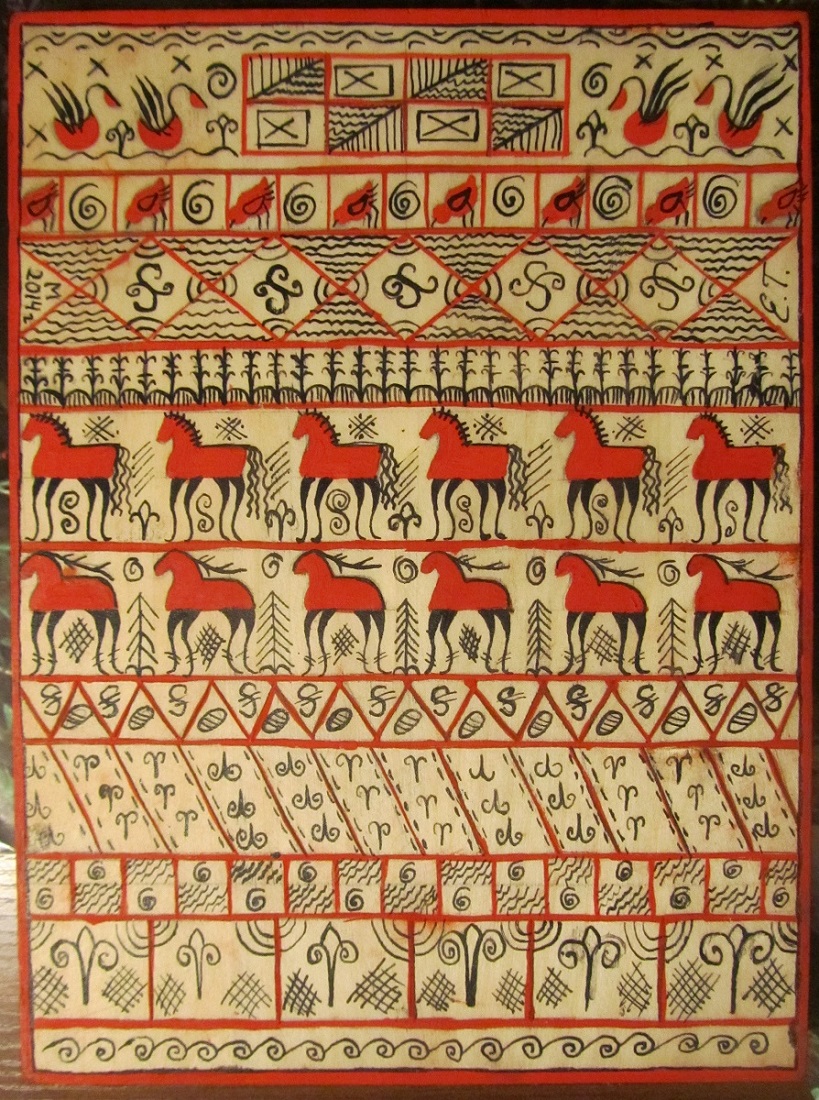 М
2014г
Е.Т.